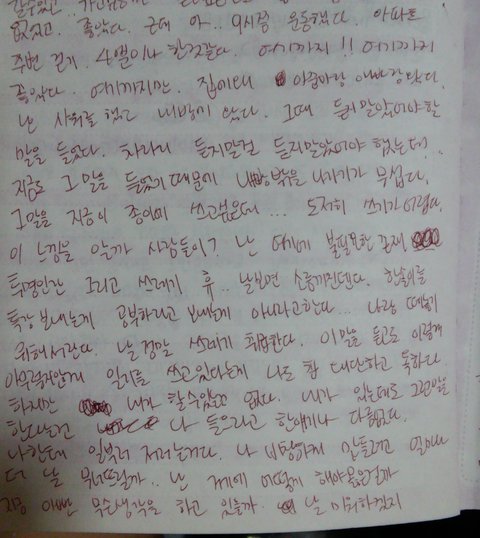 없었고.. 좋았다. 근데 아.. 9시쯤 운동했다. 아파트
주변 걷기. 4번이나 한것같다. 여기까지!! 여기까지
좋았다. 여기까지만. 집에와서 아줌마랑 아빠랑
난 샤워를 했고 내방에 왔다. 그때 듣지말았어야 할
말을 들었다. 차라리 듣지말걸 듣지말았어야 했는데..
지금도 그 말을 들었기 때문에 내방 밖을 나가기가 무섭다.
그말을 지금이 종이에 쓰고싶은데 ... 도저히 쓰기가 어렵다.
이 느낌을 알까 사람들이? 난 여기에 불필요한 존재
투명인간 그리고 쓰레기 휴.. 날보면 소름끼친댄다. 한솔이를
특강 보내는게 공부하라고 보내는게 아니라고한다... 나랑 떼놓기
위해서란다. 날 정말 쓰레기 취급한다. 이말을 듣고도 이렇게
아무렇지않게 일기를 쓰고있다는게 나도 참 대단하고 독하다
하지만 내가 할수있는건 없다. 내가 있는데도 그런말을
한다는건 나 들으라고 한얘기나 다름없다.
나한테 일부러 저러는거다. 나 비참하게 만들려고
더 날 무너뜨릴까.. 난 어떻게 해야 옳은걸까
지금 아빤 무슨생각을 하고 있을까. 날 미워하겠지